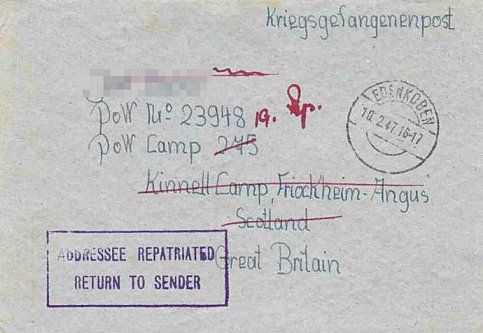 Kriegsgefangenenpost
PoW No 23948 19. Rep.
PoW Camp 275
Kinnell Camp, Friockheim-Angus
Scotland
Great Britain
EDENKOBEN
10.2.47.16-17
ADDRESSEE REPATRIATED
RETURN TO SENDER